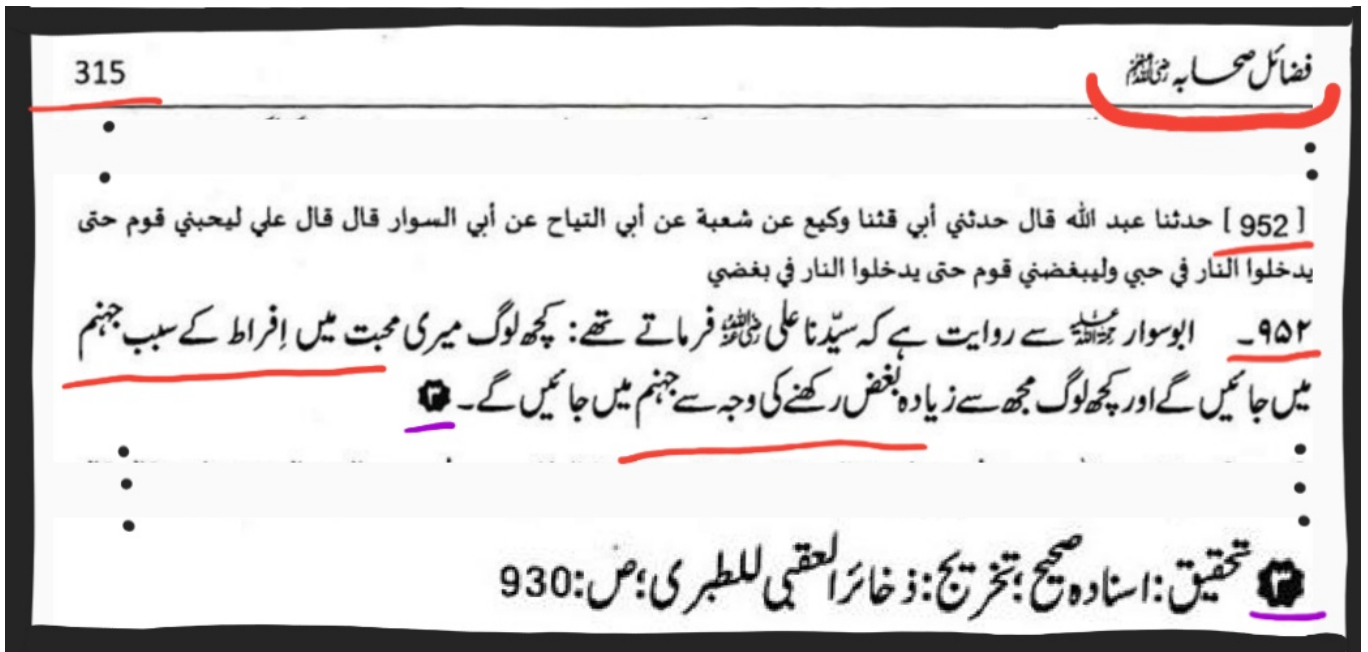 فضائل صحابہ رضی اللہ عنہم
315
[ 952 ] حدثنا عبد الله قال حدثني أبي قثنا وكيع عن شعبة عن أبي التياح عن أبي السوار قال قال علي ليحبني قوم حتى
يدخلوا النار في حبي وليبغضني قوم حتى يدخلوا النار في بغضي
۹۵۲۔ ابوسوار رحمۃ اللہ علیہ سے روایت ہے کہ سیّدنا علی رضی اللہ عنہ فرماتے تھے: کچھ لوگ میری محبت میں اِفراط کے سبب جہنم
میں جائیں گے اور کچھ لوگ مجھ سے زیادہ بغض رکھنے کی وجہ سے جہنم میں جائیں گے۔ ۳
۳ تحقیق: اسنادہ صحیح؛ تخریج: ذخائر العقبی للطبری؛ ص: 930